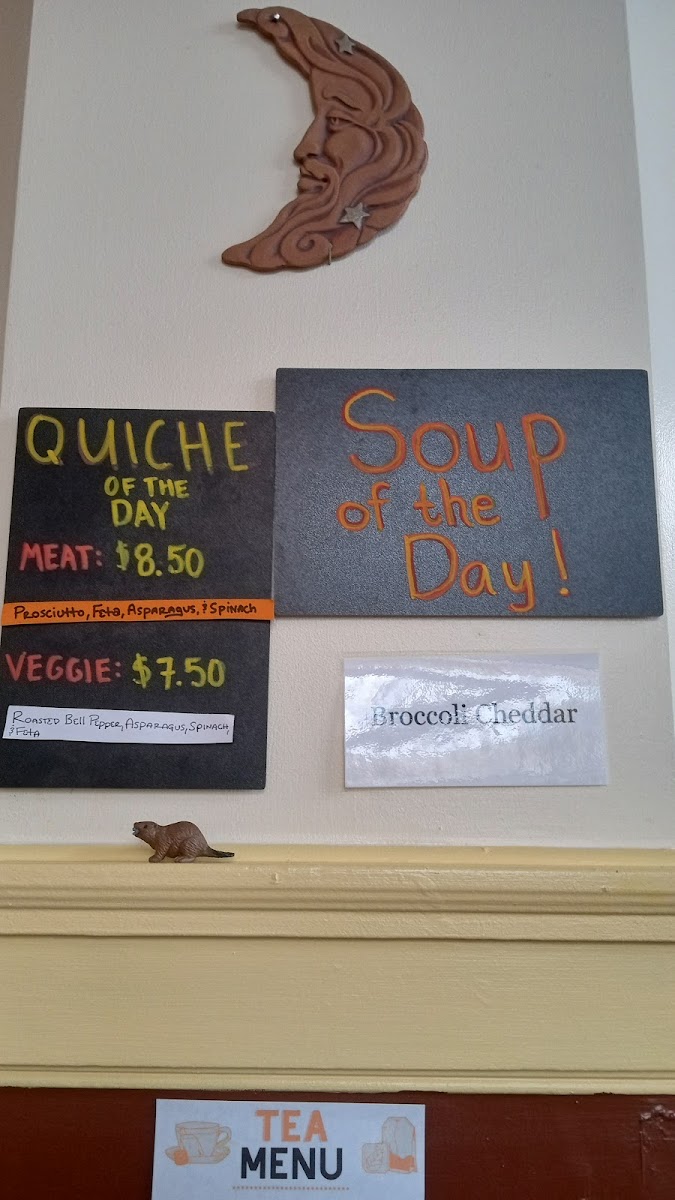 QUICHE
OF THE
DAY
MEAT: $8.50
PROSCIUTTO, FETA, ASPARAGUS, & SPINACH
VEGGIE: $7.50
ROASTED BELL PEPPER, ASPARAGUS, SPINACH,
& FETA
Soup
of the
Day!
Broccoli Cheddar
TEA
MENU